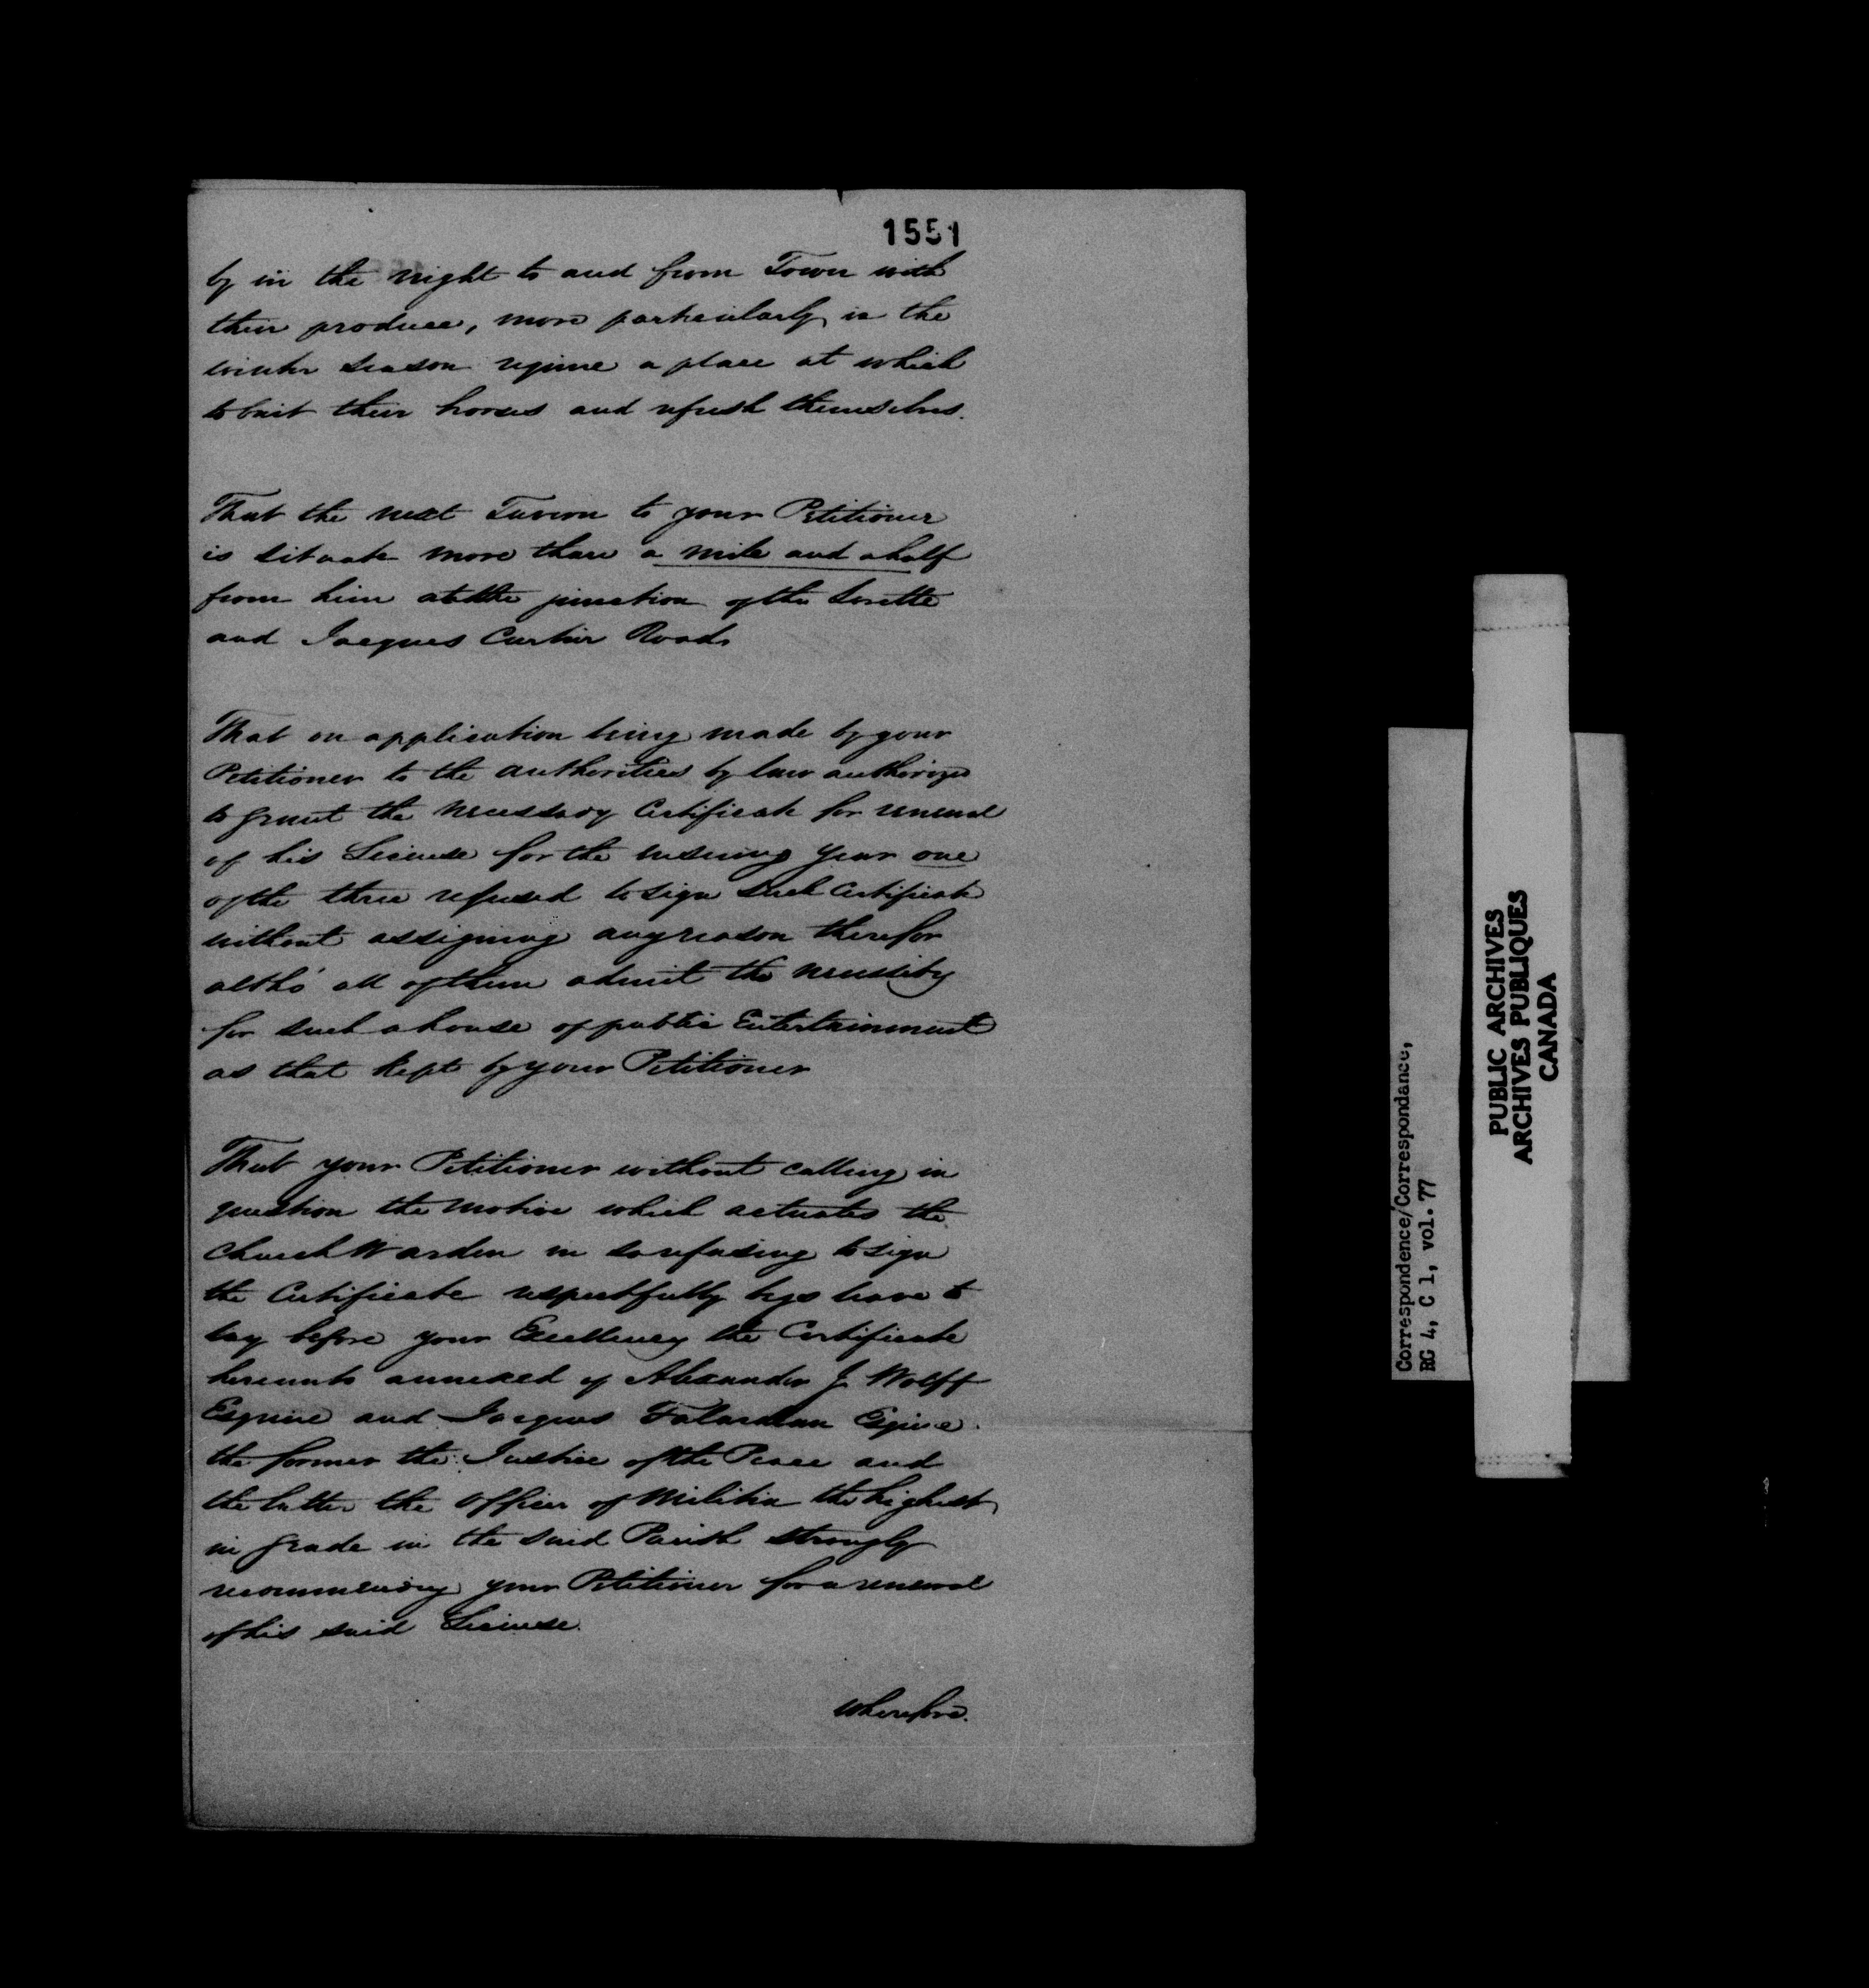 1551
by in the night to and from Town with
their produce, more particularly in the
winter season require a place at which
to bait their horses and refresh themselves.
That the next Tavern to your Petitioner
is situate more than a mile and a half
from him at the junction of the Lorette
and Jacques Cartier Roads
That on application being made by your
Petitioner to the authorities by law authorized
to grant the necessary Certificate for renewal
of his License for the ensuing year one
of the three refused to sign such Certificate
without assigning any reason therefor
altho' all of them admit the necessity
for such a house of public Entertainment
as that kept by your Petitioner
That your Petitioner without calling in
question the motive which actuates the
Church Warden in so refusing to sign
the Certificate respectfully begs leave to
lay before your Excellency the Certificate
hereunto annexed of Alexander J. Wolff
Esquire and Jacques Falardeau Esquire
the former the Justice of the Peace and
the latter the Officer of Militia the highest
in grade in the said Parish strongly
recommending your Petitioner for a renewal
of his said License.
Wherefore.
Correspondence/Correspondance,
RG 4, C 1, vol. 77
PUBLIC ARCHIVES
ARCHIVES PUBLIQUES
CANADA